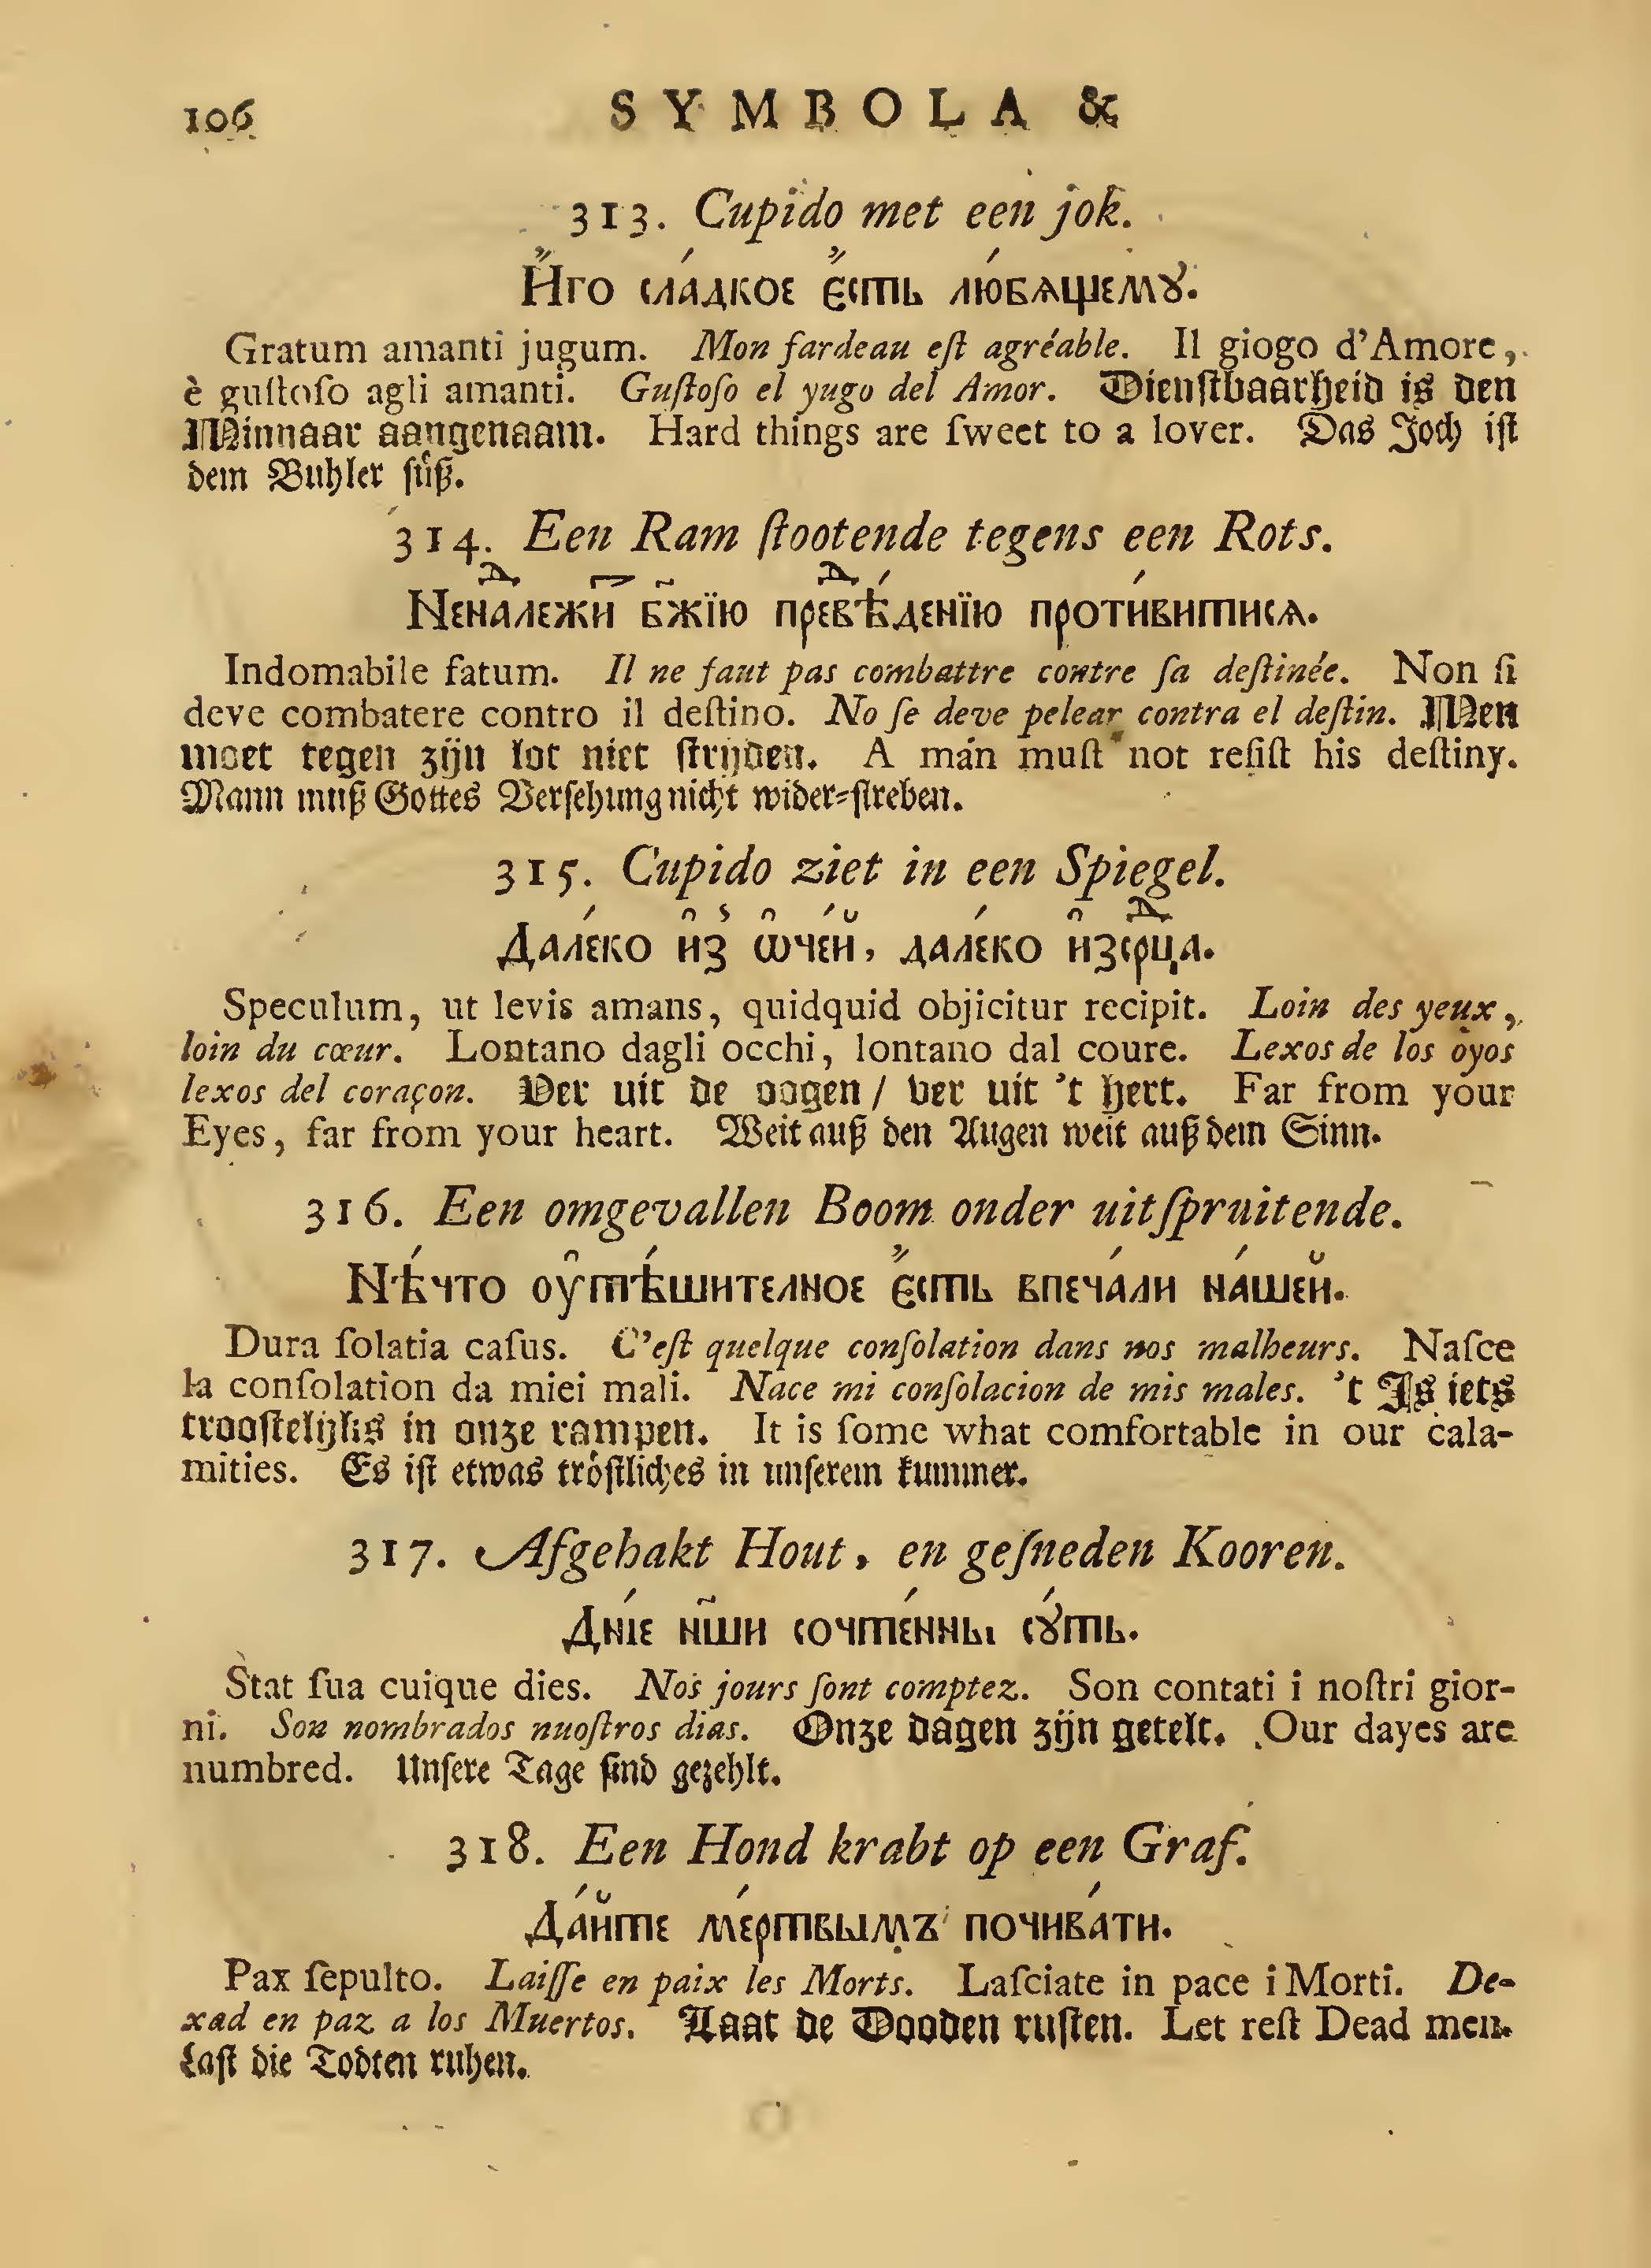 106 SYMBOLA &
313. Cupido met een jok.
И҆́го сла́дкое є҆́сть лю́бѧщемꙋ.
Gratum amanti jugum. Mon fardeau eſt agréable. Il giogo d'Amore,
è guſtoſo agli amanti. Guſtoſo el yugo del Amor. Dienſtbaarheid is den
Minnaar aangenaam. Hard things are ſweet to a lover. Das Joch iſt
dem Buhler ſuͤß.
314. Een Ram ſtootende tegens een Rots.
Неналежи бж҃їю превѣ́денїю проти́витисѧ.
Indomabile fatum. Il ne faut pas combattre contre ſa deſtinée. Non ſi
deve combatere contro il deſtino. No ſe deve pelear contra el deſtin. Men
moet tegen zijn lot niet ſtrijden. A man muſt not reſiſt his deſtiny.
Mann muß Gottes Verſehung nicht wider-ſtreben.
315. Cupido ziet in een Spiegel.
Дале́ко и҆з ѡ҆че́й, дале́ко и҆зсрⷣца.
Speculum, ut levis amans, quidquid objicitur recipit. Loin des yeux,
loin du cœur. Lontano dagli occhi, lontano dal coure. Lexos de los oyos
lexos del coraçon. Ver uit de oogen / ver uit 't hert. Far from your
Eyes, far from your heart. Weit auß den Augen weit auß dem Sinn.
316. Een omgevallen Boom onder uitſpruitende.
Нѣ́что оу҆тѣ́шителное є҆́сть впеча́ли на́шей.
Dura ſolatia caſus. C'eſt quelque conſolation dans nos malheurs. Naſce
la conſolation da miei mali. Nace mi conſolacion de mis males. 't Is iets
trooſtelijks in onze rampen. It is ſome what comfortable in our cala-
mities. Es iſt etwas troͤſtliches in unſerem kummer.
317. Afgehakt Hout, en geſneden Kooren.
Дні́е нш҃и сочте́нны сꙋ́ть.
Stat ſua cuique dies. Nos jours ſont comptez. Son contati i noſtri gior-
ni. Son nombrados nuoſtros dias. Onze dagen zijn getelt. Our dayes are
numbred. Unſere Tage ſind gezehlt.
318. Een Hond krabt op een Graf.
Да́йте ме́ртвымъ почива́ти.
Pax ſepulto. Laiſſe en paix les Morts. Laſciate in pace i Morti. De-
xad en paz a los Muertos. Laat de Dooden ruſten. Let reſt Dead men.
Laſt die Todten ruhen.